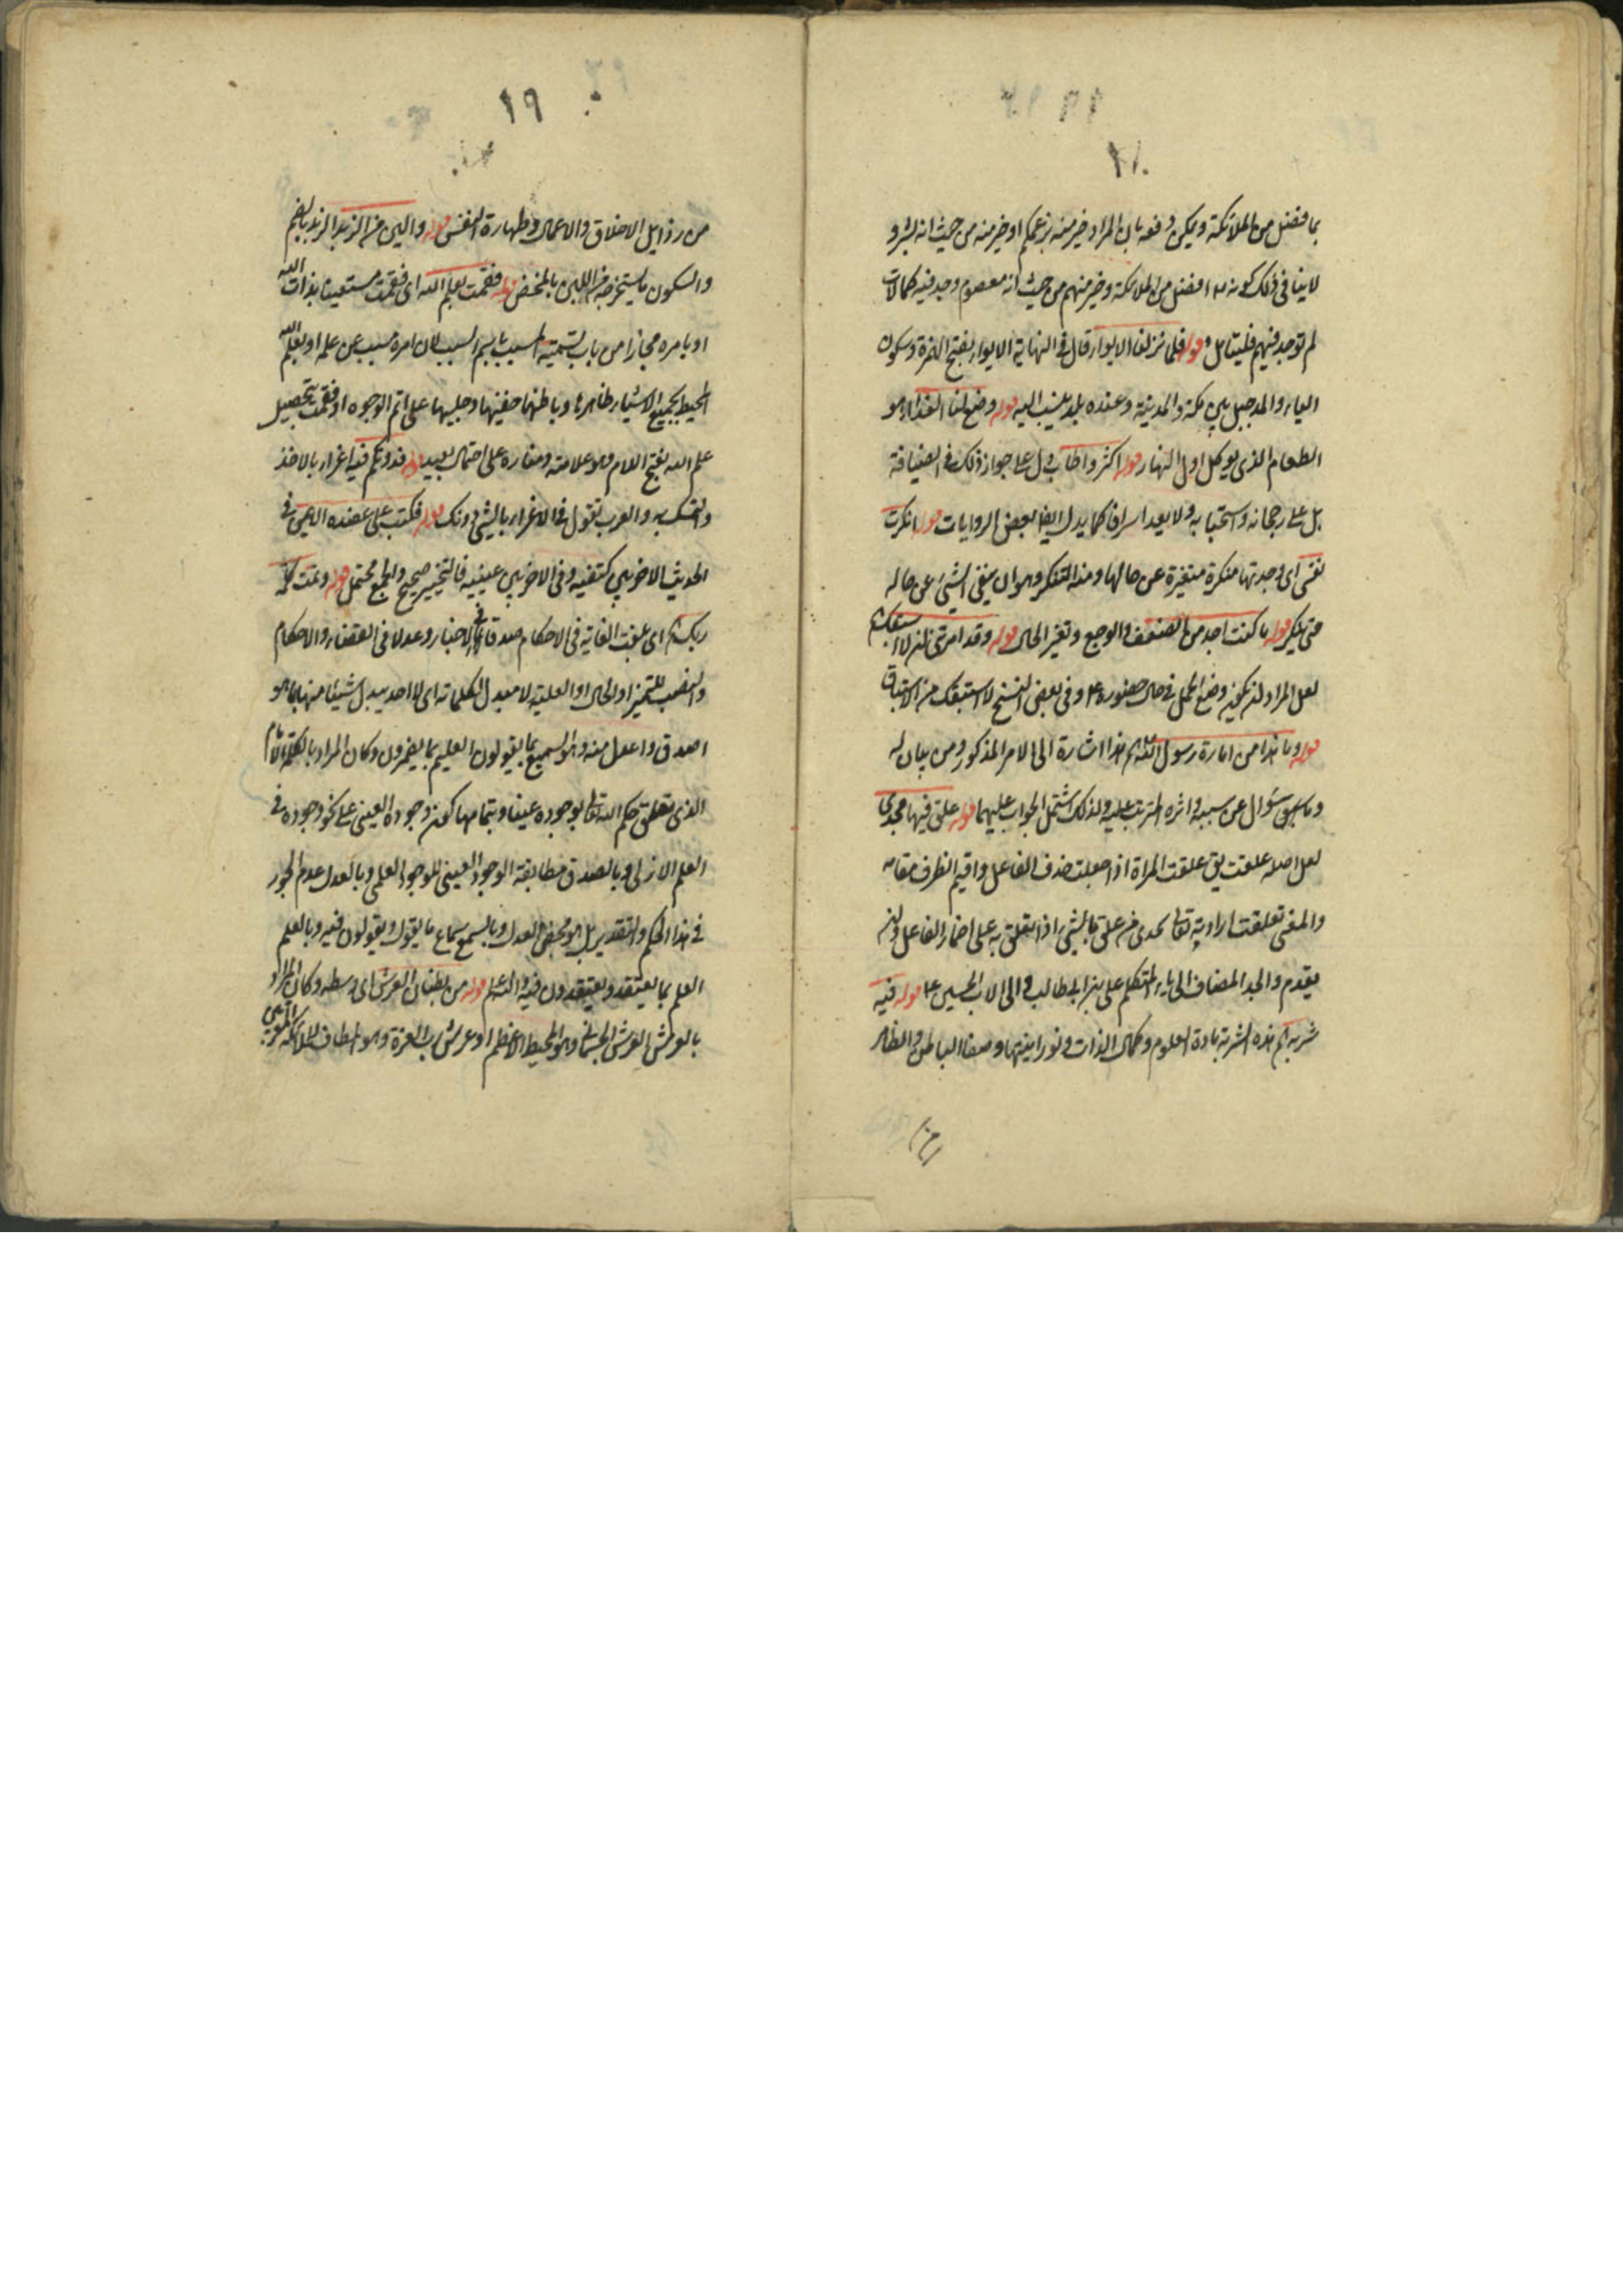 بما فضل من الملائكة ويمكن دفعه بان المراد خير منه بزعمكم او خير منه من حيث انه بشر و
لا ينافى ذلك كونه ع افضل من الملائكة وخير منهم من حيث انه معصوم وجد فيه كمالات
لم توجد فيهم فليتامل قوله فلما نزلنا الابواء قال فى النهاية الابواء بفتح الهمزة وسكون
الباء والمد جبل بين مكة والمدينة وعنده بلد ينسب اليه قوله وضع لنا الغداء هو
الطعام الذى يوكل اول النهار قوله اكثر واطاب دل على جواز ذلك فى الضيافة
بل على رجحانه واستحبابه ولا يعد اسرافا كما يدل ايضا بعض الروايات قوله انكرت
نفسى اى وجدتها منكرة متغيرة عن حالها ومنه التنكر وهو ان يتغير الشىء عن حاله
حتى ينكر قوله ما كنت اجد من الضعف والوجع وتغير الحال قوله وقد امرتنى ان لا استبقك
لعل المراد ان يكون وضع الحمل فى حال حضوره ع وفى بعض النسخ لا استبقك من الاستباق
قوله وما هذا من امارة رسول الله هذا اشارة الى الامر المذكور ومن بيان له
وما سبق سؤال عن سببه واثره المترتب عليه ولذلك اشتمل الجواب عليهما قوله علق فيها بجدى
لعل اصله علقت يق علقت المراة اذا حبلت حذف الفاعل واقيم الظرف مقامه
والمعنى تعلقت ارادته تعالى بجدى من علق بالشىء اذا تعلق به على اضمار الفاعل وان لم
يقدم والجد المضاف الى ياء المتكلم على بن ابى طالب والى الاب الحسين ع قوله فيه
شربة هذه الشربة مادة العلوم وكمال الذات ونورانيتها وصفا الباطن والظاهر
من
١٩
من رذايل الاخلاق والاعمال وطهارة النفس قوله والين من الزبد الزبد بالضم
والسكون ما يستخرج من اللبن بالمخض قوله فقمت بعلم الله اى فقمت مستعينا بذات الله
او بامره مجازا من باب تسمية المسبب باسم السبب لان امره مسبب عن علمه او بعلم الله
المحيط بجميع الاشياء ظاهرها وباطنها خفيها وجليها على اتم الوجوه او فقمت بتحصيل
علم الله بفتح اللام وهو علامته ومناره على احتمال بعيد قوله فدونكم فيه اغراء بالاخذ
والتمسك به والعرب تقول فى الاغراء بالشىء دونك قوله فكتب على عضده الايمن فى
الحديث الاخر بين كتفيه وفى الاخر بين عينيه فالتخيير صحيح والجمع محتمل قوله وتمت كلمة
ربك اى بلغت الغاية فى الاحكام صدقا فى الاخبار وعدلا فى القضاء والاحكام
والنصب للتميز او الحال او العلية لا مبدل لكلماته اى لا احد يبدل شيئا منها بما هو
اصدق واعدل منه وهو السميع بما يقولون العليم بما يضمرون وكان المراد بالكلمة الامام
الذى تعلق حكم الله تعالى بوجوده عينا وبتمامها كون وجوده العينى على نحو وجوده فى
العلم الازلى وبالصدق مطابقة الوجود العينى للوجود العلمى وبالعدل عدم الجور
فى هذا الحكم والتقدير بل هو محض العدل وبالسمع سماع ما يقول ويقولون فيه وبالعلم
العلم بما يعتقد ويعتقدون فيه والله اعلم قوله من بطنان العرش اى وسطه وكان المراد
بالعرش العرش الجسمانى وهو المحيط الاعظم او عرش رب العزة وهو المطاف للملائكة المقربين